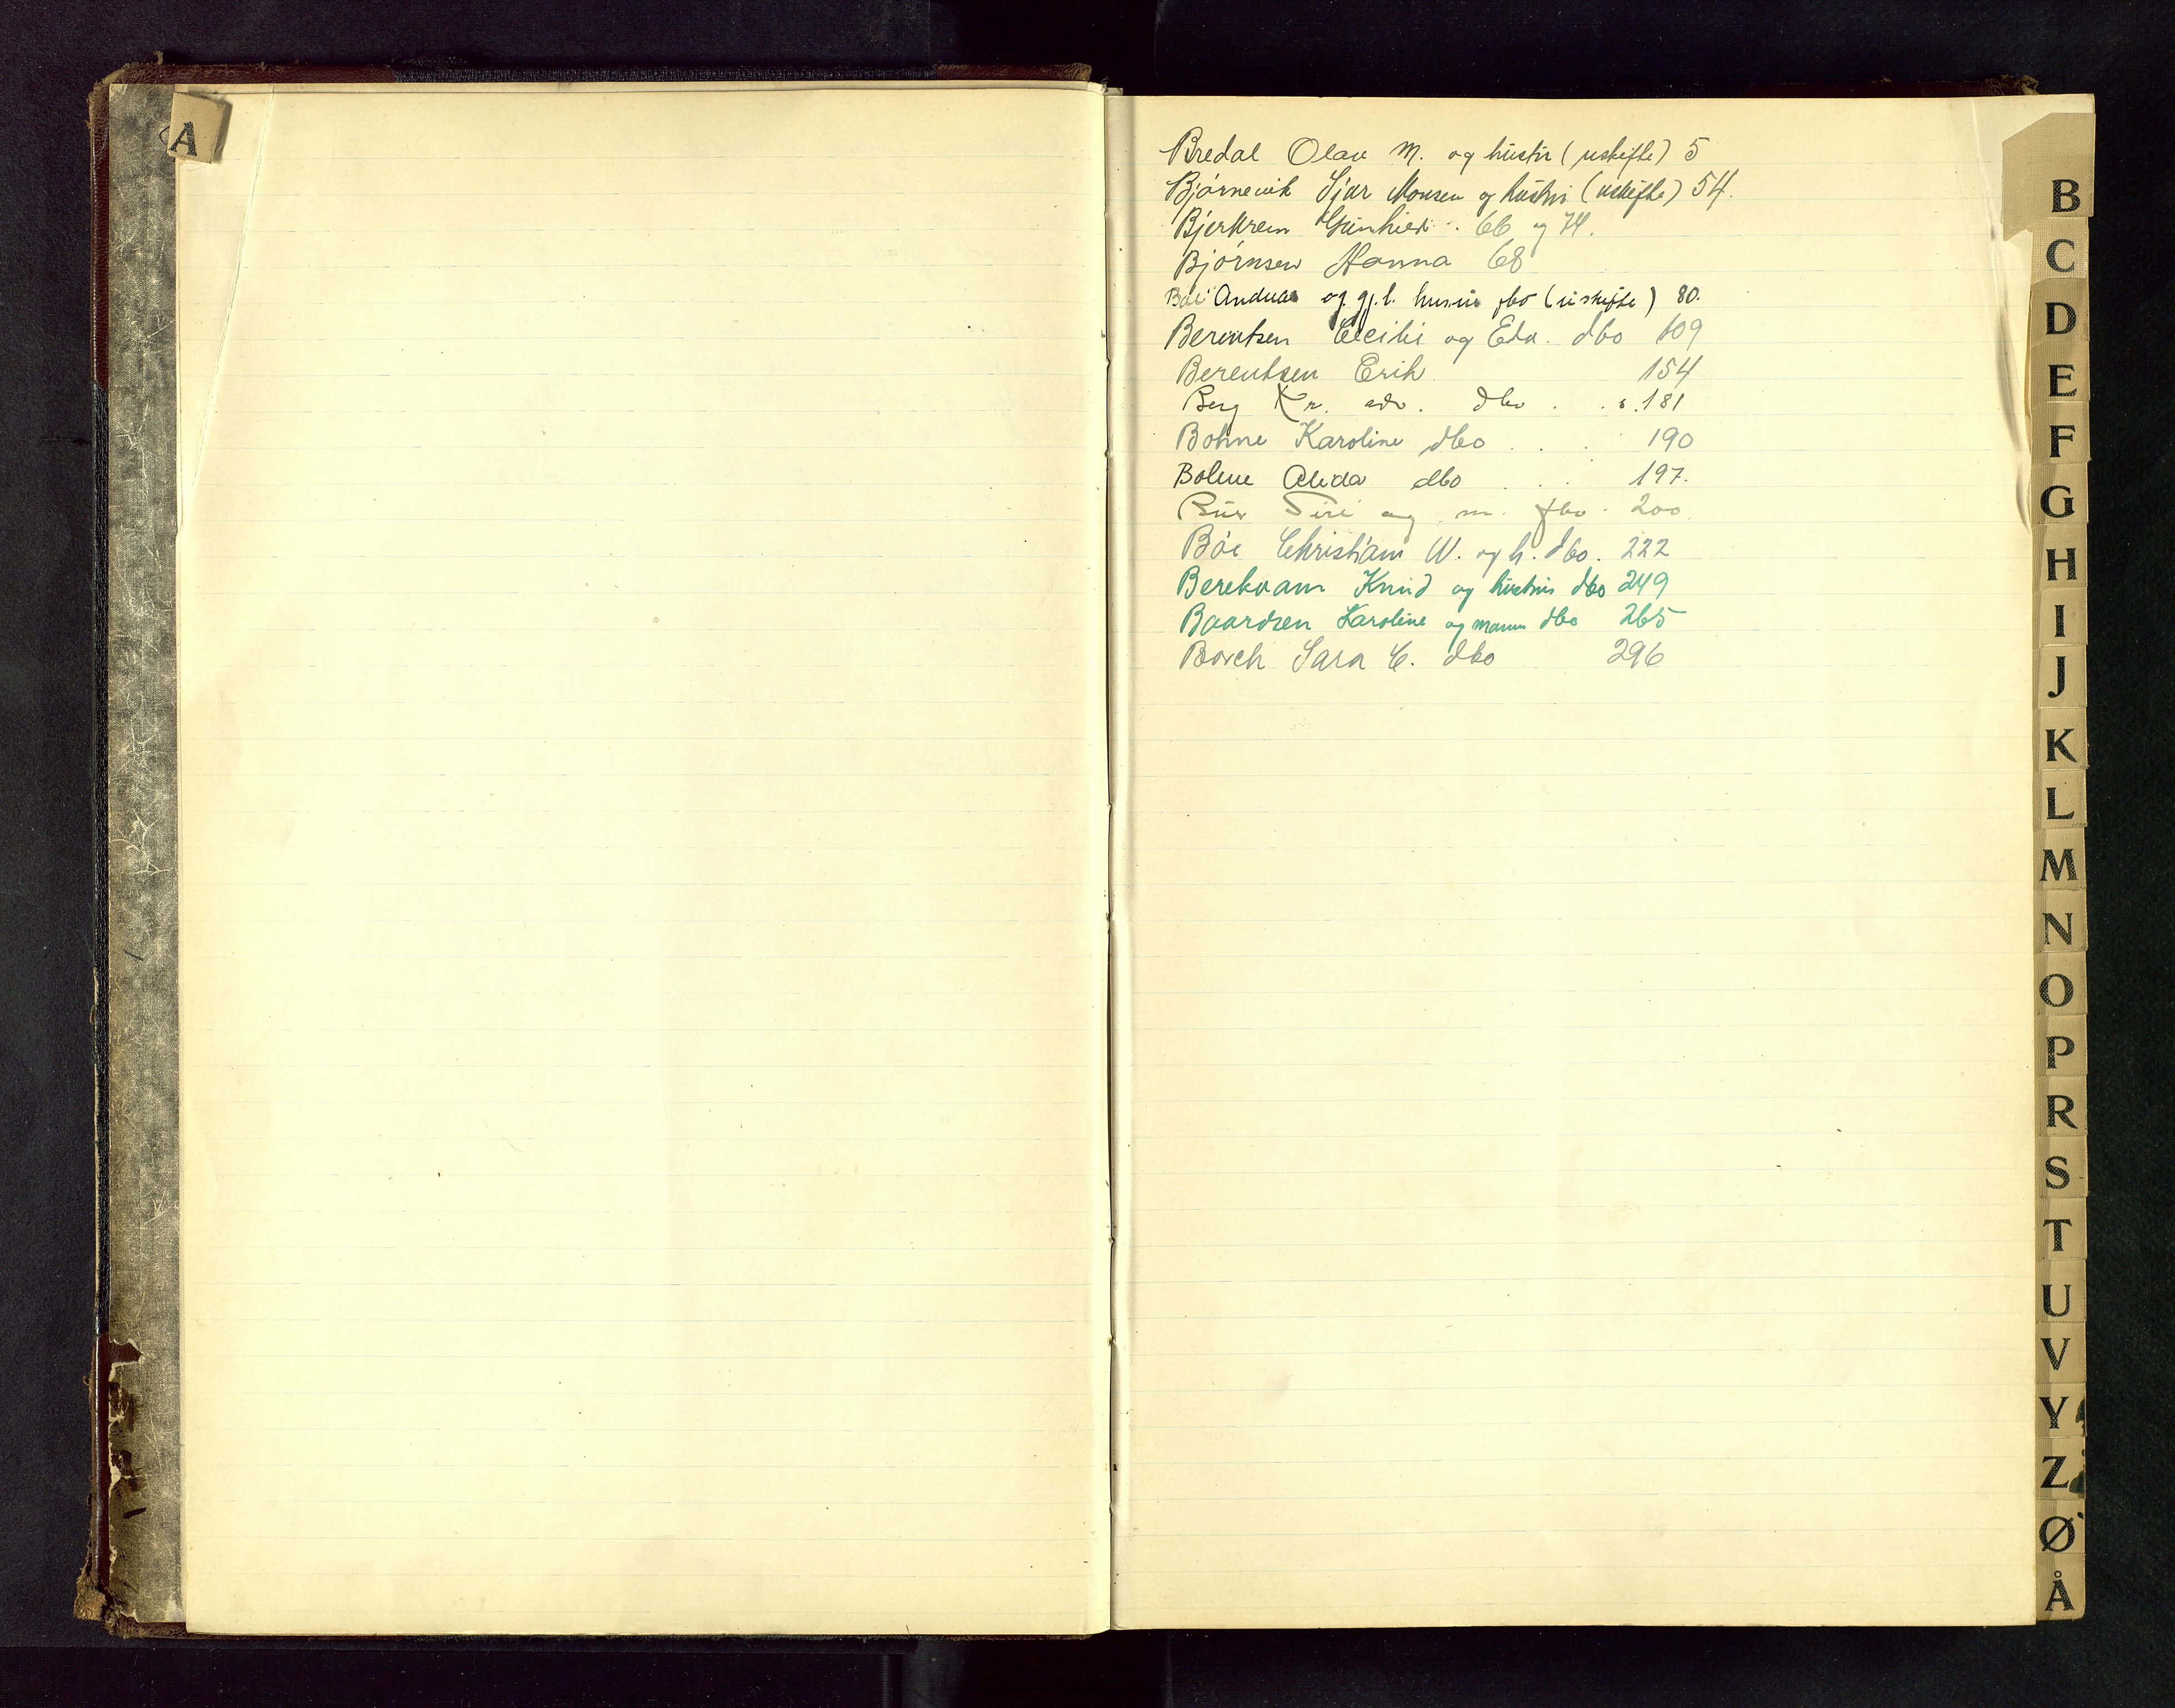 A
Bredal Olav M. og hustru (uskifte) 5
Bjørnevik Sjur Monsen og hustru (uskifte) 54.
Bjerkrem Gunhild . 66 og 74.
Bjørnsen Hanna 68
Bøe Andreas og gj.l. hustru fbo (uskifte) 80.
Berentsen Cecilie og Edv. dbo 109
Berentsen Erik 154
Berg Kr. adv. dbo . . s. 181
Bohne Karoline dbo . . . 190
Alida dbo . . . 197.
Siri og m. fbo . 200.
Bøe Christian W. og h. dbo. 222
Berekvam Knud og hustru dbo 249
Baardsen Karoline og mann dbo 265
Sara C. dbo 296
B
C
D
E
F
G
H
I
J
K
L
M
N
O
P
R
S
T
U
V
Y
Z
Ø
Å